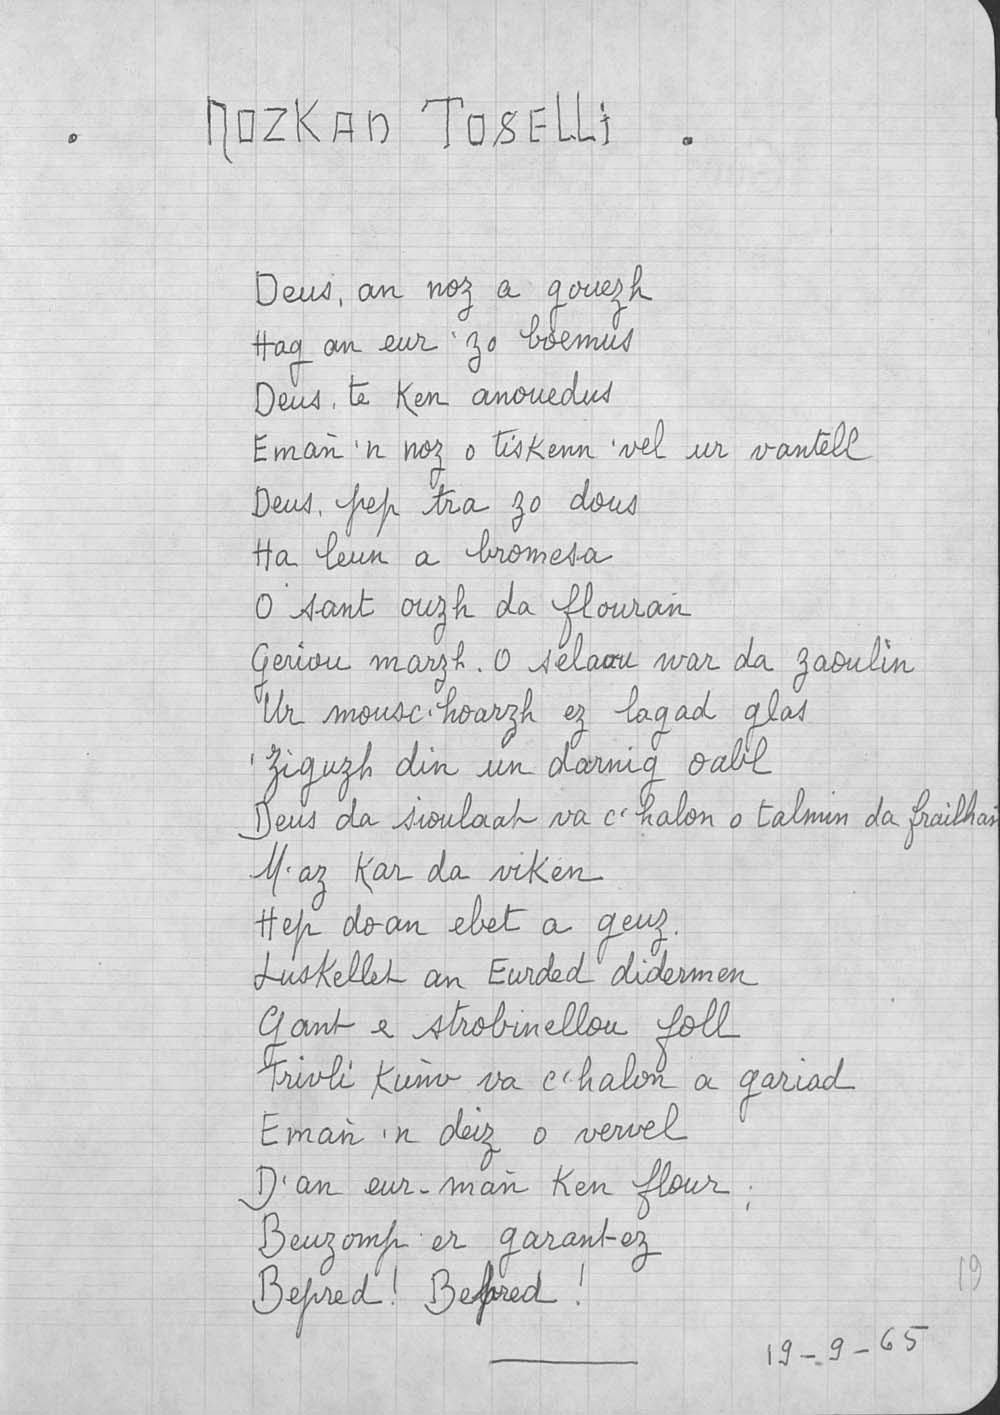 . NOZKAN TOSELLi .
Deus, an noz a gouezh
Hag an eur 'zo boemus
Deus, te Ken anouedus
Emañ 'n noz o tiskenn 'vel ur vantell
Deus, pep tra zo dous
Ha leun a bromesa
O sant ouzh da flourañ
Geriou marzh. O selaou war da zaoulin
Ur mousc'hoarzh ez lagad glas
'Ziguzh din un darnig oabl
Deus da sioulaat va c'halon o talmin da frailhañ
M'az Kar da viken
Hep doan ebet a geuz.
Luskellet an Eurded didermen
Gant e strobinellou foll
Frivli Kuñv va c'halon a gariad
Emañ 'n deiz o vervel
D'an eur-mañ Ken flour ;
Beuzomp er garantez
Bepred ! Bepred !
19
19-9-65